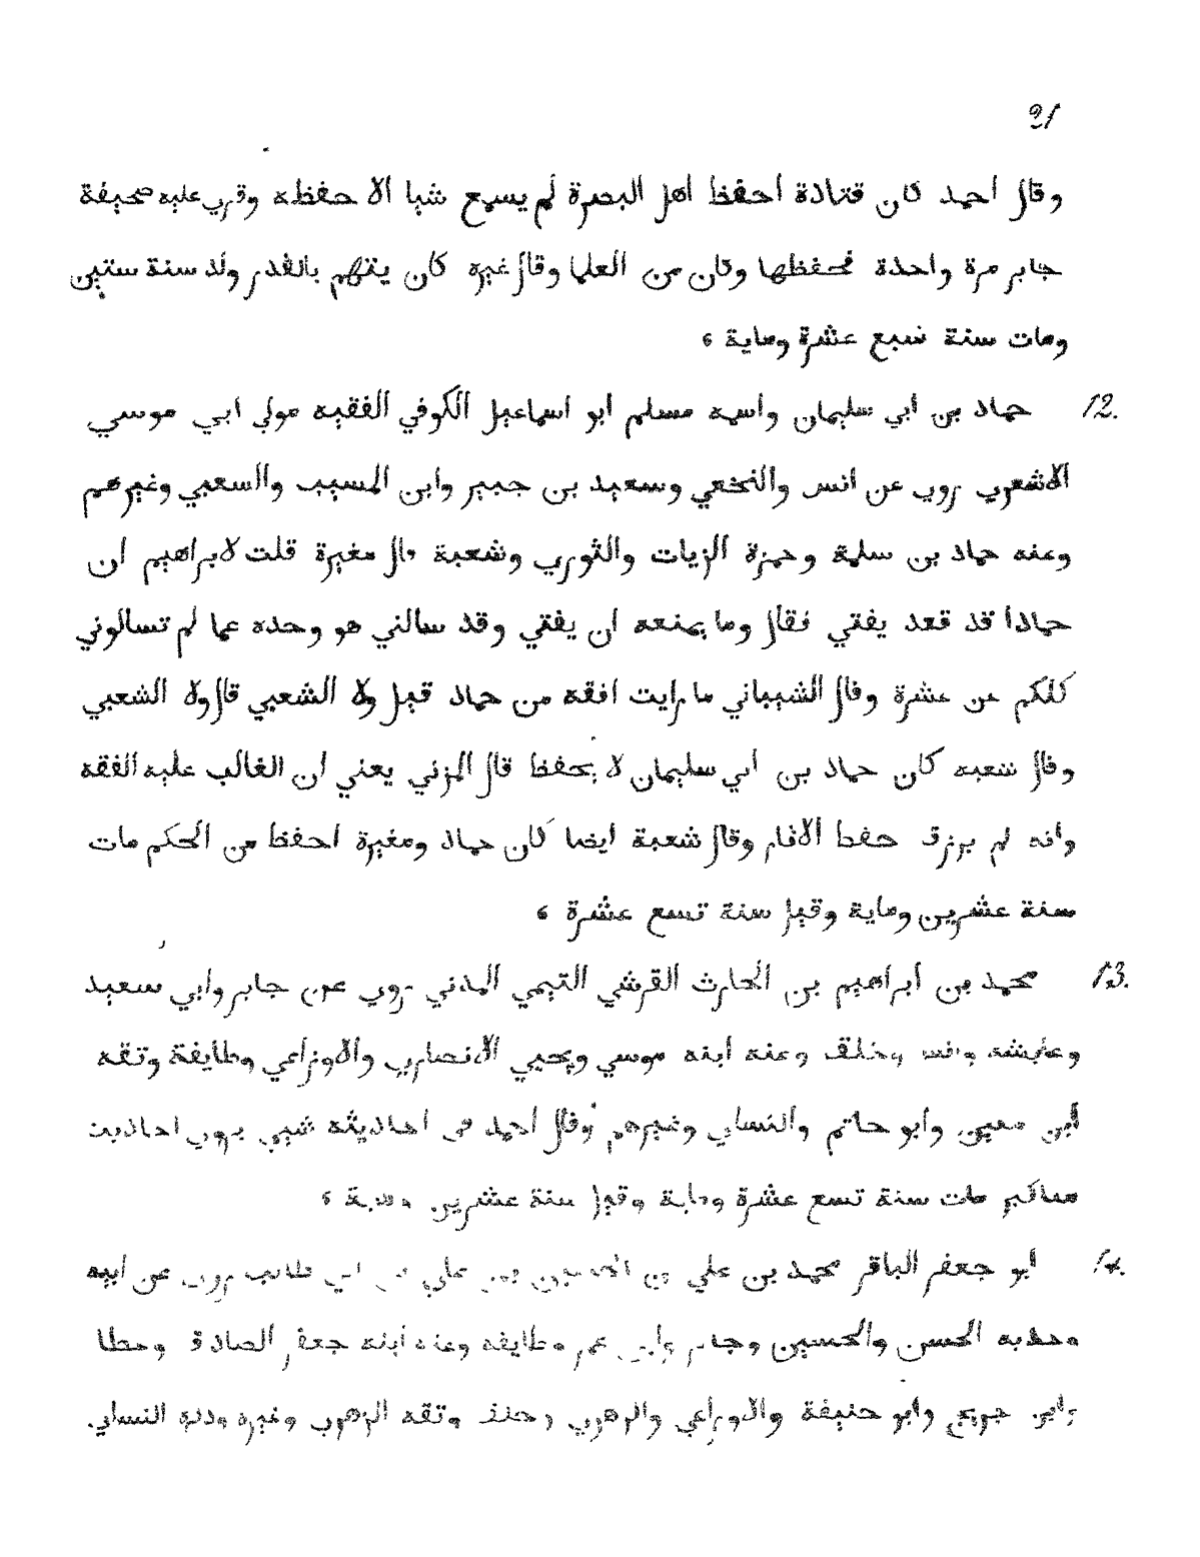 21
وقال احمد كان قتادة احفظ اهل البصرة لم يسمع شيا الا حفظه وقري عليه صحيفة
جابر مرة واحدة فحفظها وكان من العلما وقال غيره كان يتهم بالقدر ولد سنة ستين
ومات سنة سبع عشرة وماية ،
12. حماد بن ابي سليمان واسمه مسلم ابو اسماعيل الكوفي الفقيه مولي ابي موسي
الاشعري روي عن انس والنخعي وسعيد بن جبير وابن المسيب والسعبي وغيرهم
وعنه حماد بن سلمة وحمزة الزيات والثوري وشعبة قال مغيرة قلت لابراهيم ان
حمادا قد قعد يفتي فقال وما يمنعه ان يفتي وقد سالني هو وحده عما لم تسالوني
كلكم عن عشرة وقال الشيباني ما رايت افقه من حماد قيل ولا الشعبي قال ولا الشعبي
وقال شعبه كان حماد بن ابي سليمان لا يحفظ قال المزني يعني ان الغالب عليه الفقه
وانه لم يرزق حفظ الاثار وقال شعبة ايضا كان حماد ومغيرة احفظ من الحكم مات
سنة عشرين وماية وقيل سنة تسع عشرة ،
13. محمد بن ابراهيم بن الحارث القرشي التيمي المدني روي عن جابر وابي سعيد
وعايشه وانس وخلق وعنه ابنه موسي ويحيي الانصاري والاوزاعي وطايفة وثقه
ابن معين وابو حاتم والنساي وغيرهم وقال احمد في احاديثه شيي يروي احاديث
مناكير مات سنة تسع عشرة وماية وقيل سنة عشرين وماية ،
14. ابو جعفر الباقر محمد بن علي بن الحسين بن علي بن ابي طالب روي عن ابيه
وجديه الحسن والحسين وجابر وابن عمر وطايفه وعنه ابنه جعفر الصادق وعطا
وابن جريج وابو حنيفة والاوزاعي والزهري وخلق وثقه الزهري وغيره وذكره النساي.